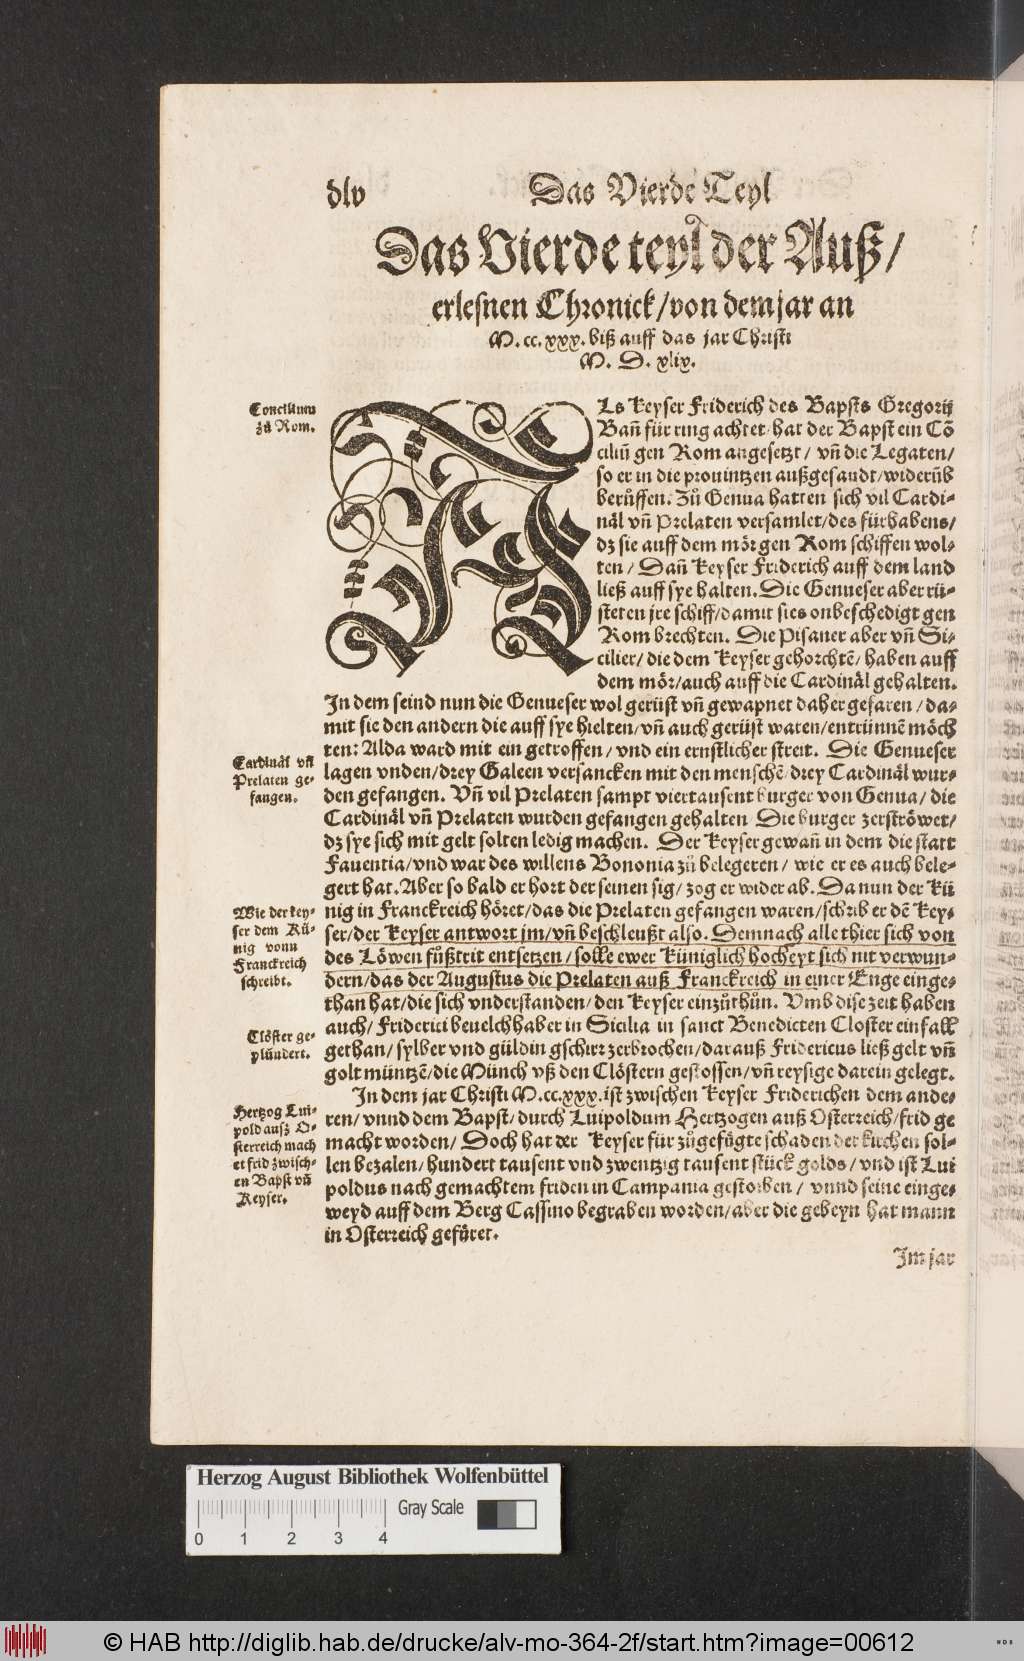 dlv
Das Vierde Teyl
Das Vierde teyl der Auß/
erlesnen Chronick/von dem jar an
M. cc. xxx. biß auff das jar Christi
M. D. xlix.
Concilium
zů Rom.
ALs Keyser Friderich des Bapsts Gregorij
Bañ für ring achtet/hat der Bapst ein Cõ
ciliũ gen Rom angesetzt / vñ die Legaten/
so er in die prouintzen außgesandt/widerũb
berůffen. Zů Genua hatten sich vil Cardi-
näl vñ Prelaten versamlet/des fürhabens/
dz sie auff dem mörgen Rom schiffen wol-
ten / Dañ Keyser Friderich auff dem land
ließ auff sye halten. Die Genueser aber rü-
steten jre schiff/damit sies onbeschedigt gen
Rom brechten. Die Pisaner aber vñ Si-
cilier/ die dem Keyser gehorchtẽ/ haben auff
dem mör/auch auff die Cardinäl gehalten.
In dem seind nun die Genueser wol gerüst vñ gewapnet daher gefaren / da-
mit sie den andern die auff sye hielten/vñ auch gerüst waren/entrünnẽ möch
ten: Alda ward mit ein getroffen / vnd ein ernstlicher streit. Die Genueser
lagen vnden/drey Galeen versancken mit den menschẽ/drey Cardinäl wur-
den gefangen. Vñ vil Prelaten sampt viertausent burger von Genua/ die
Cardinäl vñ Prelaten wurden gefangen gehalten Die burger zerströwet/
dz sye sich mit gelt solten ledig machen. Der Keyser gewañ in dem die statt
Fauentia/vnd war des willens Bononia zů belegeren/ wie er es auch bele-
gert hat. Aber so bald er hort der seinen sig/ zog er wider ab. Da nun der Kü
nig in Franckreich höret/das die Prelaten gefangen waren/schrib er dẽ Key-
ser/der Keyser antwort jm/vñ beschleußt also. Demnach alle thier sich von
des Löwen fůßtrit entsetzen / solle ewer Küniglich hocheyt sich nit verwun-
dern/das der Augustus die Prelaten auß Franckreich in einer Enge einge-
than hat/die sich vnderstanden/den Keyser einzůthůn. Vmb dise zeit haben
auch/ Friderici beuelchhaber in Sicilia in sanct Benedicten Closter einfall
gethan/sylber vnd güldin gschirr zerbrochen/darauß Fridericus ließ gelt vñ
golt müntzẽ/die Münch vß den Clöstern gestossen/vñ reysige darein gelegt.
In dem jar Christi M.cc.xxx.ist zwischen Keyser Friderichen dem ande-
ren/ vnnd dem Bapst/durch Luipoldum Hertzogen auß Osterreich/frid ge
macht worden/ Doch hat der Keyser für zůgefůgte schaden der kirchen sol-
len bezalen/hundert tausent vnd zwentzig tausent stück golds/ vnd ist Lui
poldus nach gemachtem friden in Campania gestorben/ vnnd seine einge-
weyd auff dem Berg Cassino begraben worden/aber die gebeyn hat mann
in Osterreich gefüret.
Cardinäl vñ
Prelaten ge-
fangen.
Wie der key-
ser dem Kü-
nig vonn
Franckreich
schreibt.
Clöster ge-
plündert.
Hertzog Lui-
pold ausz O-
sterreich mach
et frid zwisch-
en Bapst vñ
Keyser.
Im jar
Herzog August Bibliothek Wolfenbüttel
Gray Scale
0 1 2 3 4
© HAB http://diglib.hab.de/drucke/alv-mo-364-2f/start.htm?image=00612